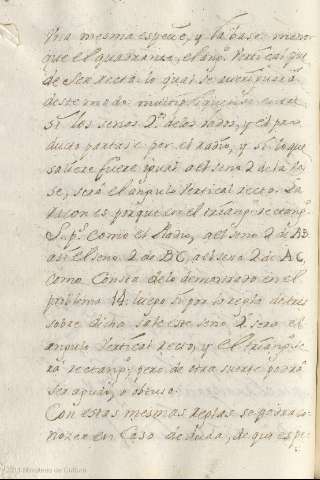 Una mesma especie, y la base menor
que el quadrante, el ang.º Vertical pue
de ser recto: lo qual se averiguará
deste modo multipliquense entre
sí los senos 2.os de los lados, y el pro
ducto partase por el radio, y si lo que
saliere fuere igual al seno 2.º de la ba
se, será el angulo Vertical recto. La
razon es porque en el triang.º rectang.º
Sup.º como el Radio, al seno 2.º de AB.
así el seno 2.º de BC, al seno 2.º de AC,
como Consta de lo demonstrado en el
problema 14. luego si por la regla de tres
sobre dicha sale este seno 2.º sera el
angulo Vertical recto, y el triangulo
rá rectang.º pero de otra suerte podrá
ser agudo, o obtuso.
Con estas mesmas reglas se podra co
nozer en Caso de duda, de que espe
2011 Ministerio de Cultura